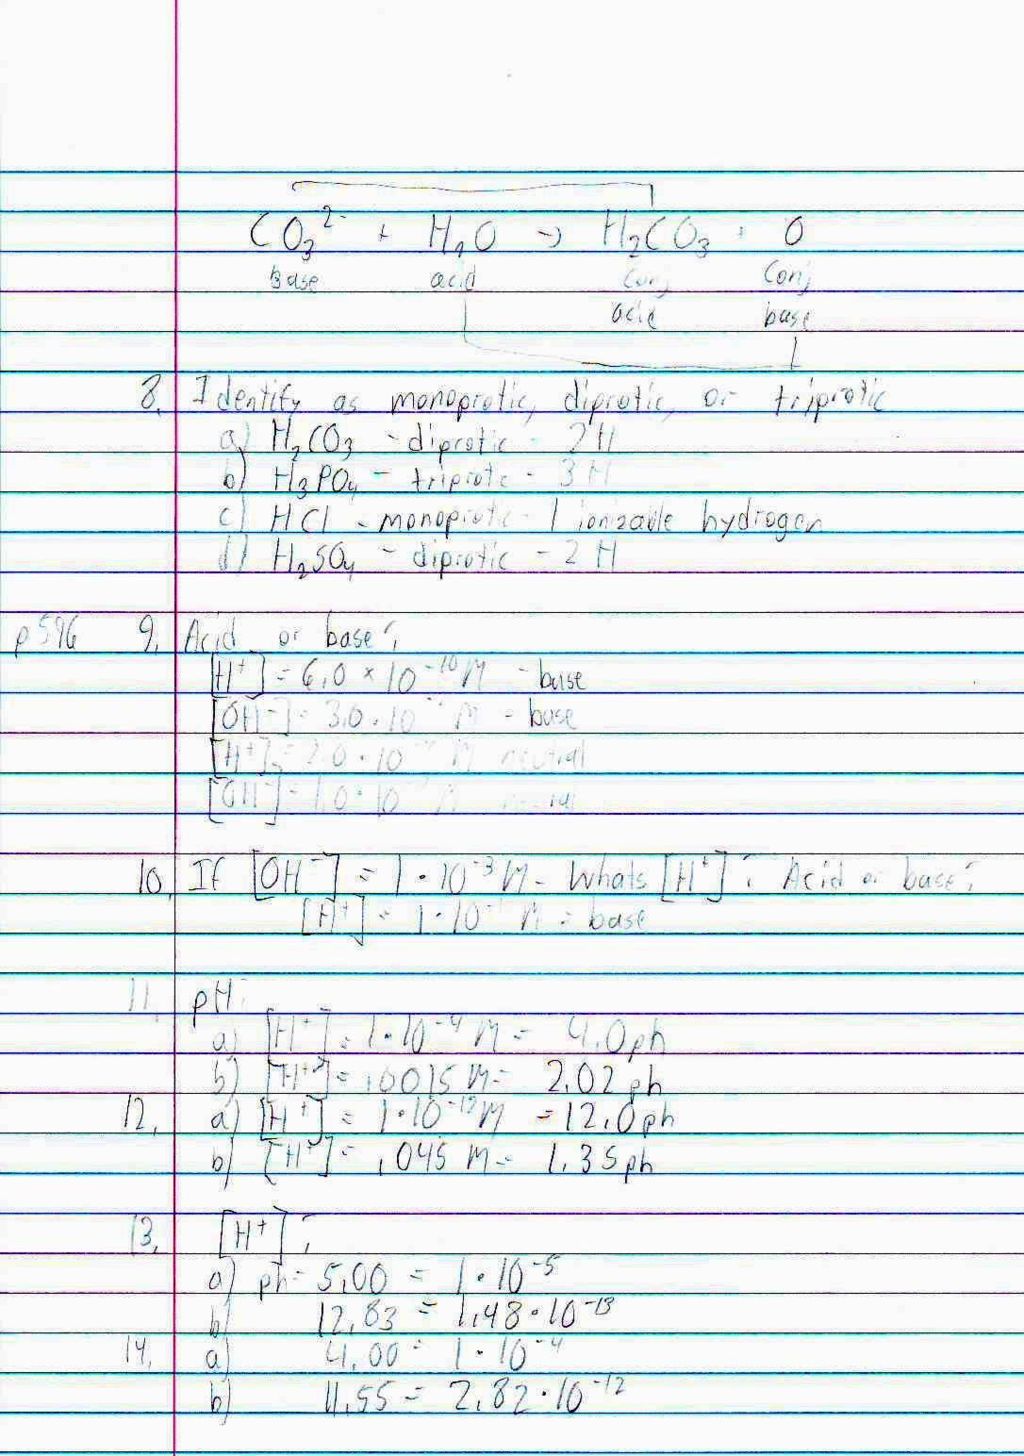 CO3 2- + H2O → H2CO3 + O
Base acid Conj Conj
acid base
8. Identify as monoprotic, diprotic, or triprotic
a) H2CO3 - diprotic - 2H
b) H3PO4 - triprotc - 3H
c) HCl - monoprotic - 1 ionizable hydrogen
d) H2SO4 - diprotic - 2H
p596 9. Acid or base:
[H+] = 6.0 × 10^-10 M - base
[OH-] = 3.0 · 10 M - base
[H+] = 2.0 · 10 M neutral
[OH-] = 1.0 · 10 M
10. If [OH-] = 1 · 10^-3 M - Whats [H+]: Acid or base:
[H+] = 1 · 10 M = base
11. pH:
a) [H+] = 1 · 10^-4 M = 4.0 ph
b) [H+] = .0015 M = 2.02 ph
12. a) [H+] = 1 · 10^-12 M = 12.0 ph
b) [H+] = .045 M = 1.35 ph
13. [H+]:
a) ph = 5.00 = 1 · 10^-5
b) 12.83 = 1.48 · 10^-13
14. a) 4.00 = 1 · 10^-4
b) 11.55 = 2.82 · 10^-12